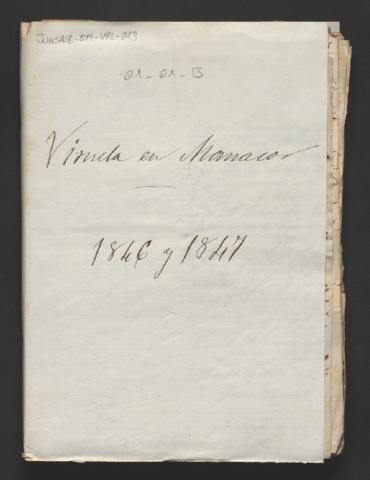 JUNSAIB-EM-VRL-013
01-01-13
Viruela en Manacor
1846 y 1847